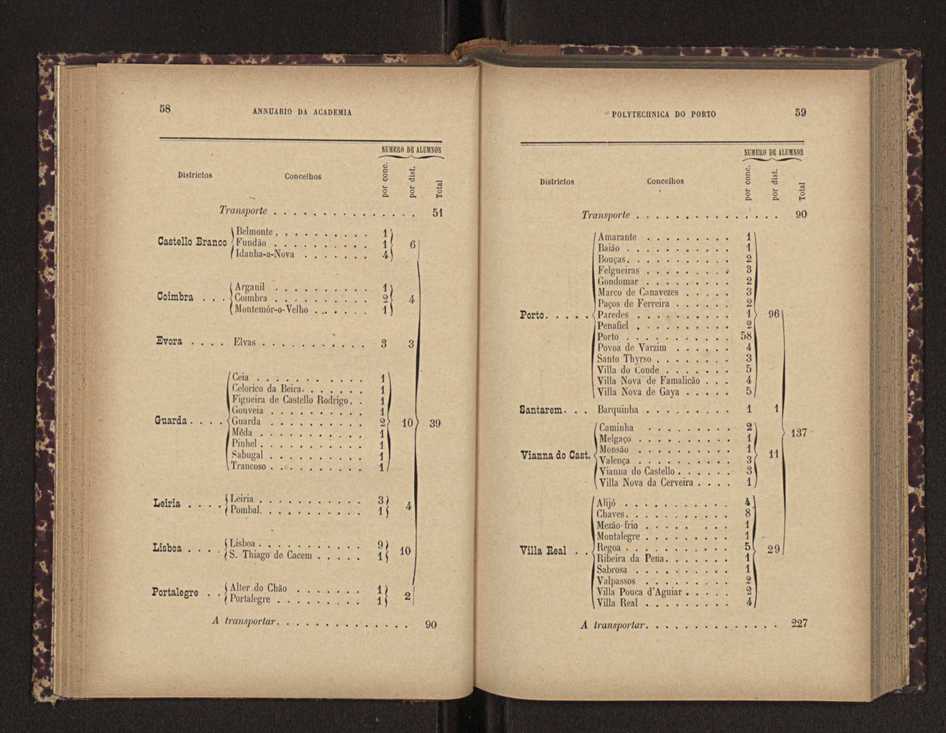 58
ANNUARIO DA ACADEMIA
NUMERO DE ALUMNOS
Districtos Concelhos por conc. por dist. Total
Transporte . . . . . . . . . . . . . . 51
Belmonte . . . . . . . . . . 1
Castello Branco Fundão . . . . . . . . . . 1 6
Idanha-a-Nova . . . . . . . 4
Arganil . . . . . . . . . . 1
Coimbra . . . Coimbra . . . . . . . . . . 2 4
Montemór-o-Velho . . . . . . 1
Evora . . . . Elvas . . . . . . . . . . . 3 3
Ceia . . . . . . . . . . . 1
Celorico da Beira. . . . . . . 1
Figueira de Castello Rodrigo. . 1
Gouveia . . . . . . . . . . 1
Guarda . . . . Guarda . . . . . . . . . . 2 10 39
Mêda . . . . . . . . . . . 1
Pinhel . . . . . . . . . . . 1
Sabugal . . . . . . . . . . 1
Trancoso . . . . . . . . . . 1
Leiria . . . . Leiria . . . . . . . . . . . 3 4
Pombal. . . . . . . . . . . 1
Lisboa . . . . Lisboa . . . . . . . . . . . 9 10
S. Thiago de Cacem . . . . . 1
Portalegre . . Alter do Chão . . . . . . . 1 2
Portalegre . . . . . . . . . 1
A transportar. . . . . . . . . . . . . . 90
POLYTECHNICA DO PORTO
59
NUMERO DE ALUMNOS
Districtos Concelhos por conc. por dist. Total
Transporte . . . . . . . . . . . . . . 90
Amarante . . . . . . . . . 1
Baião . . . . . . . . . . . 1
Bouças. . . . . . . . . . . 2
Felgueiras . . . . . . . . . 3
Gondomar . . . . . . . . . 2
Marco de Canavezes . . . . . 3
Paços de Ferreira . . . . . . 2
Porto. . . . . Paredes . . . . . . . . . . 1 96
Penafiel . . . . . . . . . . 2
Porto . . . . . . . . . . . 58
Povoa de Varzim . . . . . . 4
Santo Thyrso . . . . . . . . 3
Villa do Conde . . . . . . . 5
Villa Nova de Famalicão . . . 4
Villa Nova de Gaya . . . . . 5
Santarem. . . Barquinha . . . . . . . . . 1 1
137
Caminha . . . . . . . . . 2
Melgaço . . . . . . . . . . 1
Monsão . . . . . . . . . . 1
Vianna do Cast. Valença . . . . . . . . . . 3 11
Vianna do Castello . . . . . . 3
Villa Nova da Cerveira . . . . 1
Alijó . . . . . . . . . . . 4
Chaves. . . . . . . . . . . 8
Mezão-frio . . . . . . . . . 1
Montalegre . . . . . . . . . 1
Villa Real . . Regoa . . . . . . . . . . . 5 29
Ribeira da Pena. . . . . . . 1
Sabrosa . . . . . . . . . . 1
Valpassos . . . . . . . . . 2
Villa Pouca d'Aguiar . . . . . 2
Villa Real . . . . . . . . . 4
A transportar. . . . . . . . . . . . . . 227